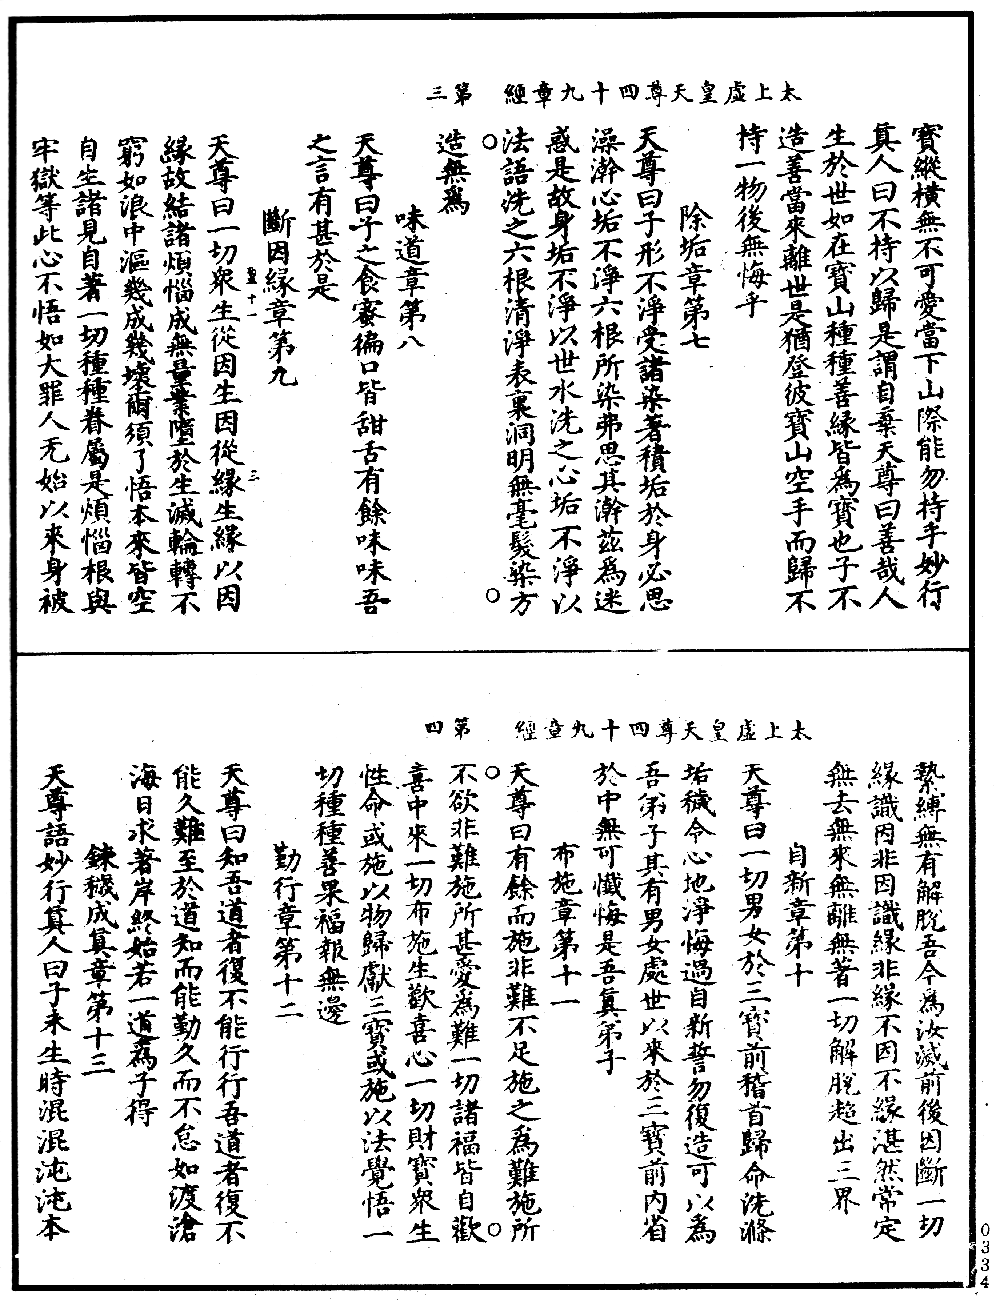 太上虛皇天尊四十九章經　第三
寶縱橫無不可愛當下山際能勿持乎妙行
真人曰不持以歸是謂自棄天尊曰善哉人
生於世如在寶山種種善緣皆為寶也子不
造善當來離世是猶登彼寶山空手而歸不
持一物後無悔乎
除垢章第七
天尊曰子形不淨受諸染著積垢於身必思
澡瀚心垢不淨六根所染弗思其瀚茲為迷
惑是故身垢不淨以世水洗之心垢不淨以
法語洗之六根清淨表裏洞明無毫髮染方
造無為
味道章第八
天尊曰子之食蜜徧口皆甜舌有餘味味吾
之言有甚於是
斷因緣章第九
天尊曰一切衆生從因生因從緣生緣以因
緣故結諸煩惱成無量業墮於生滅輪轉不
窮如浪中漚幾成幾壞爾須了悟本來皆空
自生諸見自著一切種種眷屬是煩惱根與
牢獄等此心不悟如大罪人无始以來身被
太上虛皇天尊四十九章經　第四
縶縛無有解脫吾今為汝滅前後因斷一切
緣識因非因識緣非緣不因不緣湛然常定
無去無來無離無著一切解脫超出三界
自新章第十
天尊曰一切男女於三寶前稽首歸命洗滌
垢穢令心地淨悔過自新誓勿復造可以為
吾弟子其有男女處世以來於三寶前內省
於中無可懺悔是吾真弟子
布施章第十一
天尊曰有餘而施非難不足施之為難施所
不欲非難施所甚愛為難一切諸福皆自歡
喜中來一切布施生歡喜心一切財寶衆生
性命或施以物歸獻三寶或施以法覺悟一
切種種善果福報無邊
勤行章第十二
天尊曰知吾道者復不能行行吾道者復不
能久難至於道知而能勤久而不怠如渡滄
海日求著岸終始若一道為子得
鍊穢成真章第十三
天尊語妙行真人曰子未生時混混沌沌本
0334